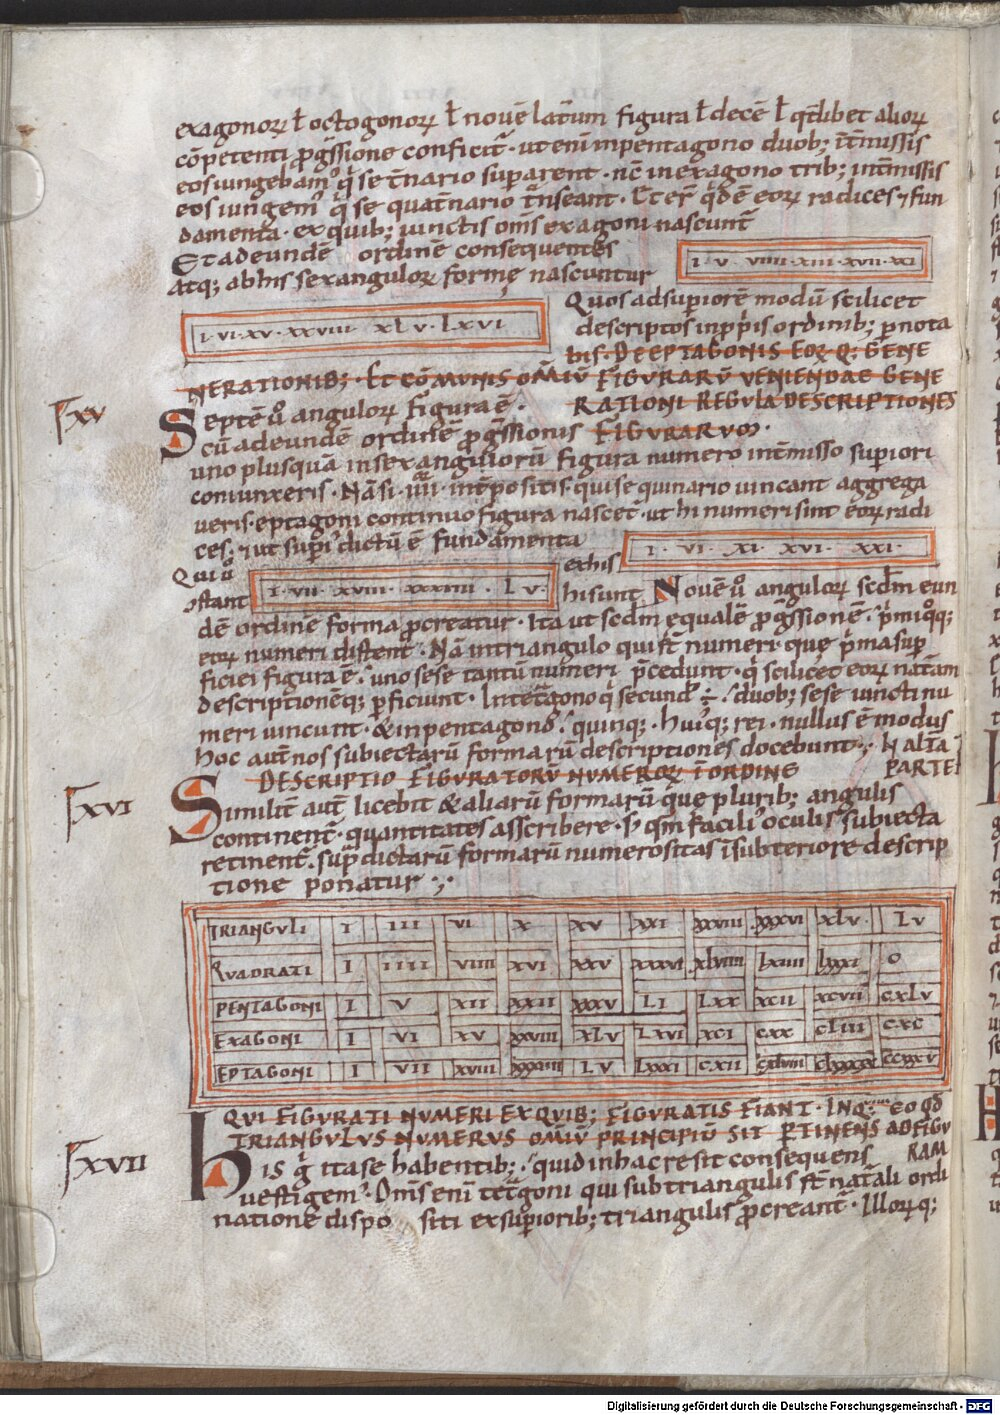 exagonoꝝ ł octogonoꝝ ł nouē latūm figura ł decē ł q̄tlibet alioꝝ
cōpetenti p̱g̊ssione conficit᷑ · ut eniminpentagono duob; īt̄missis
eosiungebam᷒ q̇ se t̄nario suꝑarent · nc̄ inexagono trib; int̄missis
eos iungem᷒ q̇ se quat̄nario t̄nseant · Et er̄ q̇dē eoꝝ radices ⁊ fun
damenta · ex quib; iunctis om̄s exagoni nascunt̄
Et adeundē ordinē consequentes
I · V · VIIII · XIII · XVII · XXI
atq; abhis sexanguloꝝ formę nascuntur
Quos adsuꝑiorē modū scilicet
I · VI · XV · XXVIII XLV · LXVI
descriptos inꝓp̱is ordinib; ꝑnota
bis · DE EPTAGONIS EOꝜ Q; GENE
NERATIONIB; · ET CŌMVNIS OM̄IV̄ FIGVRARV̄ VENIENDAE GENE
RATIONI REGVLA DESCRIPTIONES
XV
Septē ů anguloꝝ figura ē ·
FIGVRARVM ·
cū adeundē ordinē p̱g̊ssionis
uno plusquā insexanguiorū figura numero int̄misso suꝑiori
coniunxeris · Nā si · IIII · int̄positis · quise quinario uincant aggrega
ueris · eptagoni continuo figura nascet᷑ · ut hi numeri sint eoꝝ radi
ces · ⁊ ut suꝑi᷒ dictū ē fundamenta
I · VI · XI · XVI · XXI
exhis
Qui ů
I · VII · XVIII · XXXIIII · LV
hisunt
Nouē ů anguloꝝ scd̄m eun
ꝯstant
dē ordinē forma p̱creatur · Ita ut scd̄m equalē p̱g̊ssionē · p̊miq̊q;
eoꝝ numeri distent · Nā intriangulo qui st̄ numeri que p̊ma suꝑ
ficiei figura ē · uno sese tantū numeri p̄cedunt · q̇ scilicet eoꝝ natam
descriptionēq; ꝑficiunt · In tet̄gono q̇ secund᷒ ÷ · duob; sese uincti nu
meri uincunt · & inpentagono · quinq; · Hui᷒q; rei · nullus ē modus
hoc aut̄ nos subiectarū formarū descriptiones docebunt ·
DESCRIPTIO FIGVRATORV̄ NVMEROꝜ Ī ORDINE
PARTE
XVI
Similit̄ aut̄ licebit & aliarū formarū que plurib; angulis
continent᷑ · quantitates asscribere · s; qm̄ facili᷒ oculis subiecta
retinent᷑ · sup̱dictarū formarū numerositas īsubteriore descrip
tione ponatur ·
TRIANGVLI I III VI X XV XXI XXVIII XXXVI XLV LV
QVADRATI I IIII VIIII XVI XXV XXXVI XLVIIII LXIIII LXXXI O
PENTAGONI I V XII XXII XXXV LI LXX XCII XCVII CXLV
EXAGONI I VI XV XXVIII XLV LXVI XCI CXX CLIII CXC
EPTAGONI I VII XVIII XXXIIII LV LXXXI CXII CXLVIII CLXXXX CCXXXV
QVI FIGVRATI NVMERI EX QVIB; FIGVRATIS FIANT · INQ; EO QĐ
TRIANGVLVS NVMERVS OM̄IV̄ PRINCIPIV̄ SIT ꝐTINENS AD FIGV
RAM
XVII
His g̊ itase habentib; · quid inhac resit consequens
uestigem᷒ · Om̄s eni tet̄goni qui sub triangulis st̄ nat̄ali ordi
natione dispo siti exsuꝑiorib; triangulis p̱creant᷑ · Illoꝝq;
Digitalisierung gefördert durch die Deutsche Forschungsgemeinschaft - DFG